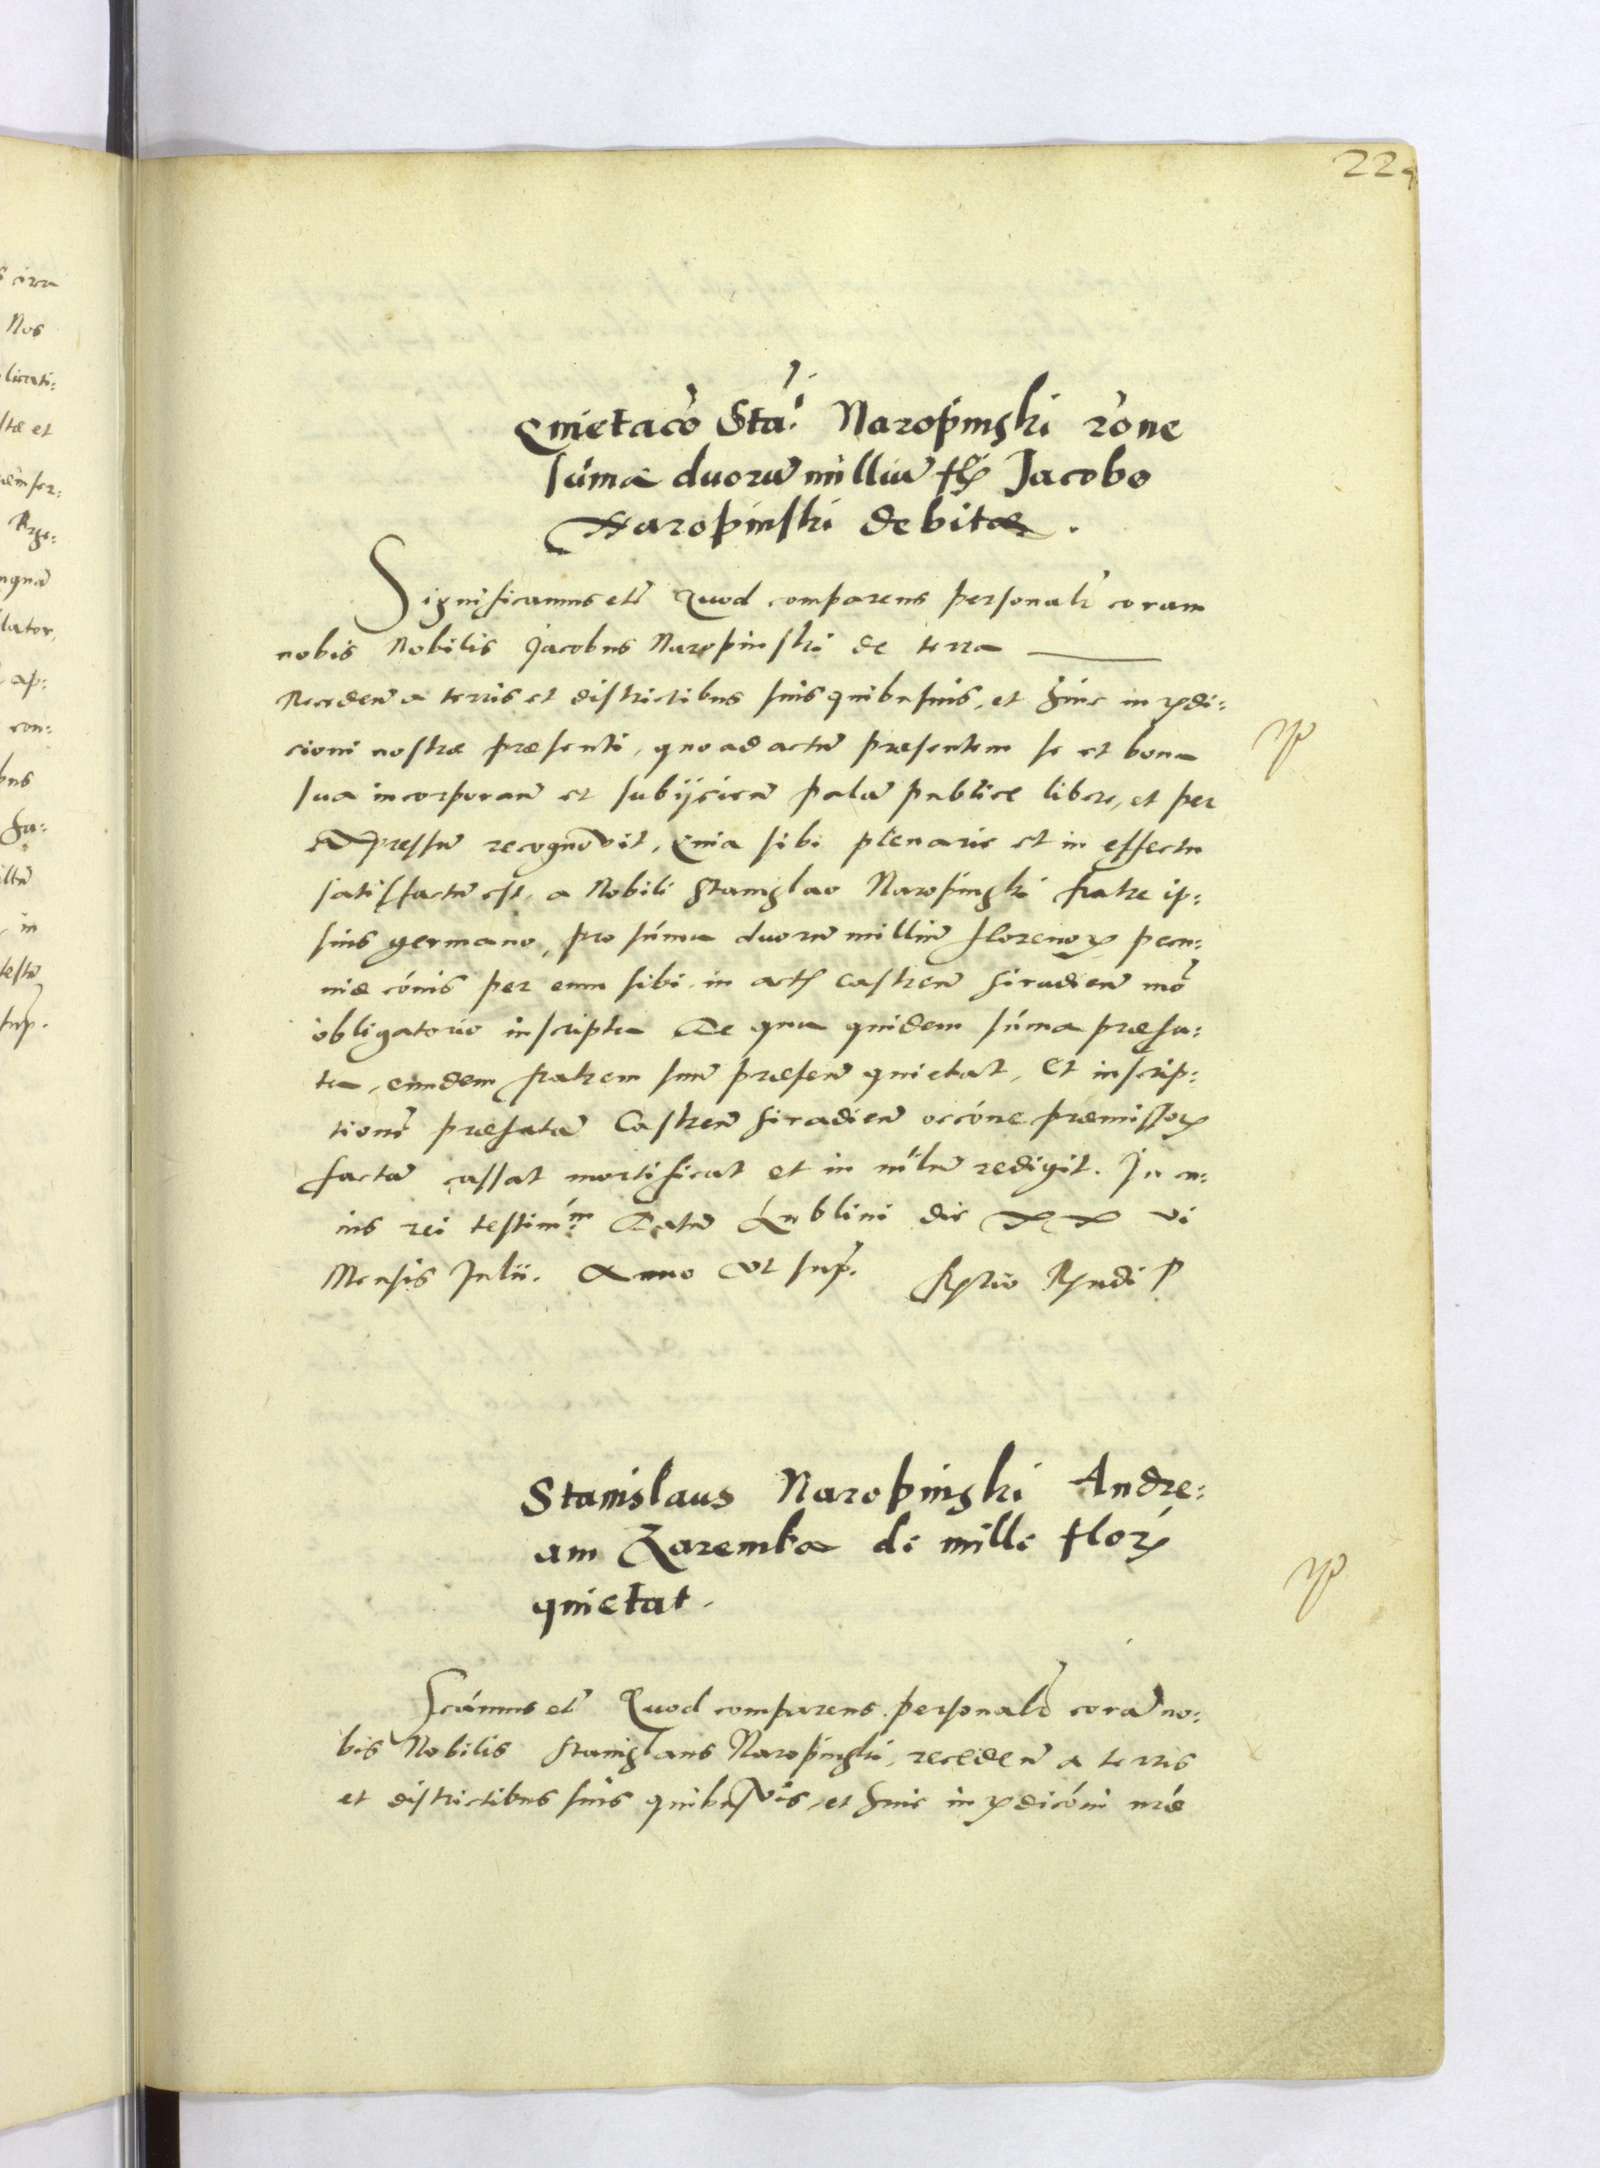 Quietaco Sta: Naropinski rone
suma duorum milliu fl Jacobo
Naropinski debitae.
Significamus etc Quod comparens personalr coram
nobis Nobilis Jacobus Naropinski de terra
Receden a terris et districtibus suis quibusuis, et huic iurisdi:
cioni nostrae praesenti, quo ad actum praesentem se et bona
sua incorporan et subijcien palam publice libere, et per
expressum recognovit, Quia sibi plenarie et in effectu
satisfactum est, a Nobili Stanislao Naropinski fratre ip:
sius germano, pro suma duorum millium florenorum pecu:
niae cois per eum sibi in actis castren siradien mo
obligatorio inscripta De qua quidem suma praefa:
ta, eundem fratrem suum praesen quietat, Et inscrip:
tione praefatam Castren Siradien occone praemissorum
factam cassat mortificat et in nihilum redigit. In cu:
ius rei testim Datum Lublini die XX vi
Mensis Julii. Anno Ut sup.
Stanislaus Naropinski Andre:
am Zaremba de mille flor
quietat.
Scamus etc Quod comparens personalr coram no:
bis Nobilis Stanislaus Naropinski, receden a terris
et districtibus suis quibusvis, et huic iurisdicioni nrae
s circa
Nos
licati:
stae et
lator,
ap:
con:
bus
in
sup.